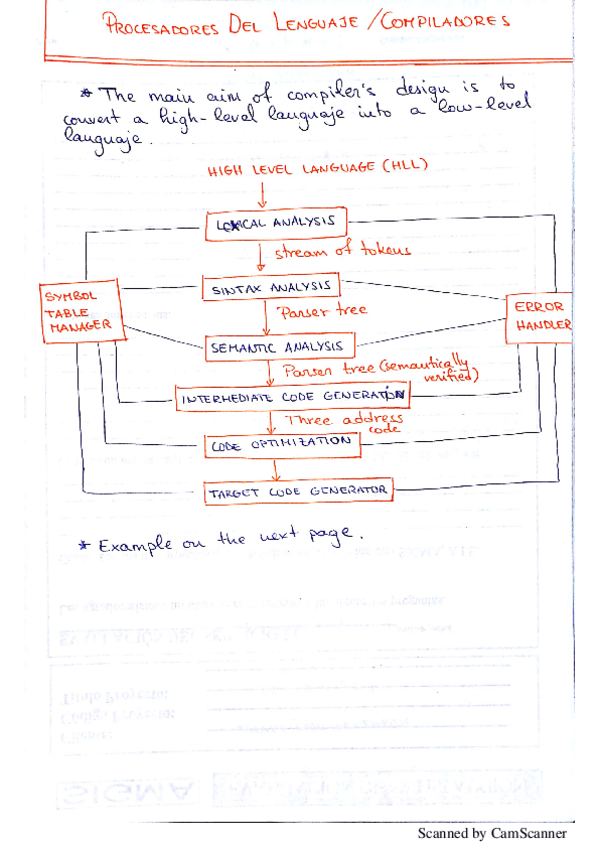 PROCESADORES DEL LENGUAJE/COMPILADORES
* The main aim of compiler's design is to
convert a high-level languaje into a low-level
languaje.
HIGH LEVEL LANGUAGE (HLL)
LEXICAL ANALYSIS
stream of tokens
SINTAX ANALYSIS
SYMBOL
TABLE
MANAGER
ERROR
HANDLER
Parser tree
SEMANTIC ANALYSIS
Parser tree (semantically
verified)
INTERMEDIATE CODE GENERATION
Three address
code
CODE OPTIMIZATION
TARGET CODE GENERATOR
* Example on the next page.
Título Proyecto:
Código Proyecto:
Cliente:
SIGMA
Scanned by CamScanner